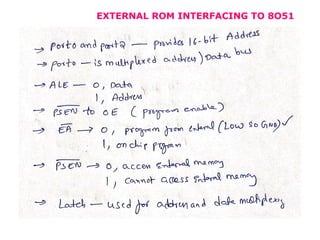 EXTERNAL ROM INTERFACING TO 8051
→ Port0 and port2 — provides 16-bit Address
→ Port0 — is multiplexed address/Data bus
→ ALE — 0, Data
1, Address
→ PSEN to OE (program enable)
→ EA → 0, program from external (LOW SO GND) ✓
1, onchip program
→ PSEN → 0, access external memory
1, Cannot access external memory
→ Latch — used for address and data multiplexing